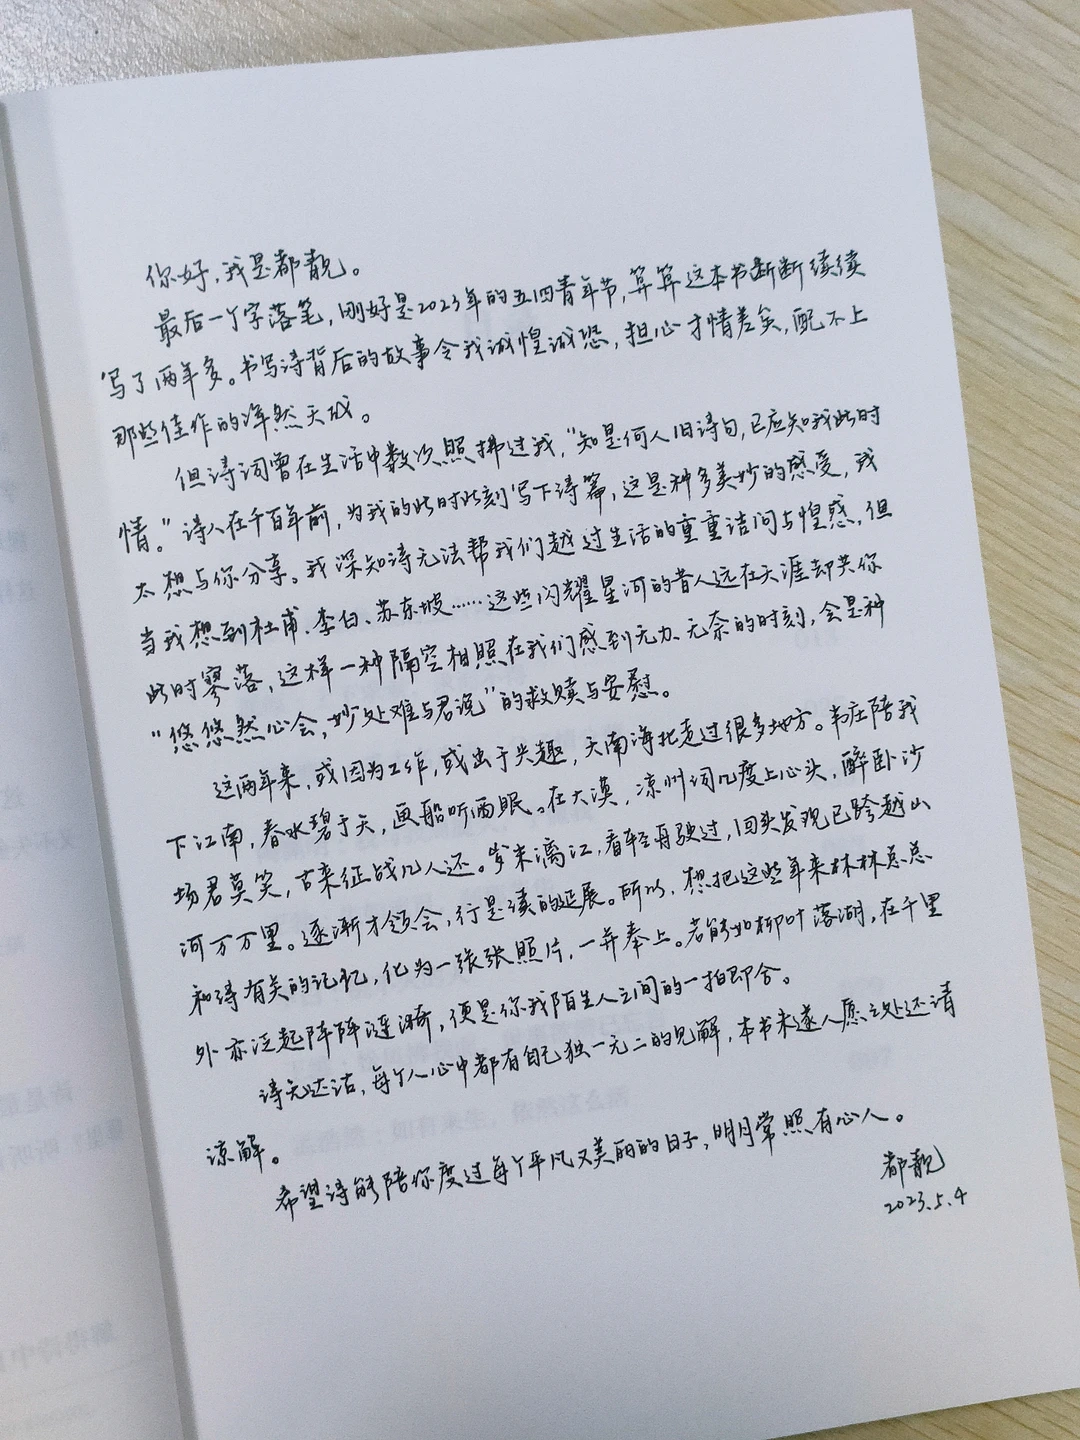 你好，我是都靓。
最后一个字落笔，刚好是2023年的五四青年节，算算这本书断断续续
写了两年多。书写诗背后的故事令我诚惶诚恐，担心才情差矣，配不上
那些佳作的浑然天成。
但诗词曾在生活中数次照拂过我，“知是何人旧诗句，已应知我此时
情。”诗人在千百年前，为我的此时此刻写下诗篇，这是种多美妙的感受，我
太想与你分享。我深知诗无法帮我们越过生活的重重诘问与惶惑，但
当我想到杜甫、李白、苏东坡……这些闪耀星河的昔人远在天涯却共你
此时寥落，这样一种隔空相照在我们感到无力、无奈的时刻，会是种
“悠悠然心会，妙处难与君说”的救赎与安慰。
这两年来，或因为工作，或出于兴趣，天南海北走过很多地方。韦庄陪我
下江南，春水碧于天，画船听雨眠。在大漠，凉州词几度上心头，醉卧沙
场君莫笑，古来征战几人还。岁末漓江，看轻舟驶过，回头发现已跨越山
河万万里。逐渐才领会，行是读的延展。所以，想把这些年来林林总总
和诗有关的记忆，化为一张张照片，一并奉上。若能如柳叶落湖，在千里
外亦泛起阵阵涟漪，便是你我陌生人之间的一拍即合。
诗无达诂，每个人心中都有自己独一无二的见解，本书未遂人愿之处还请
谅解。
希望诗能陪你度过每个平凡又美丽的日子，明月常照有心人。
都靓
2023.5.4